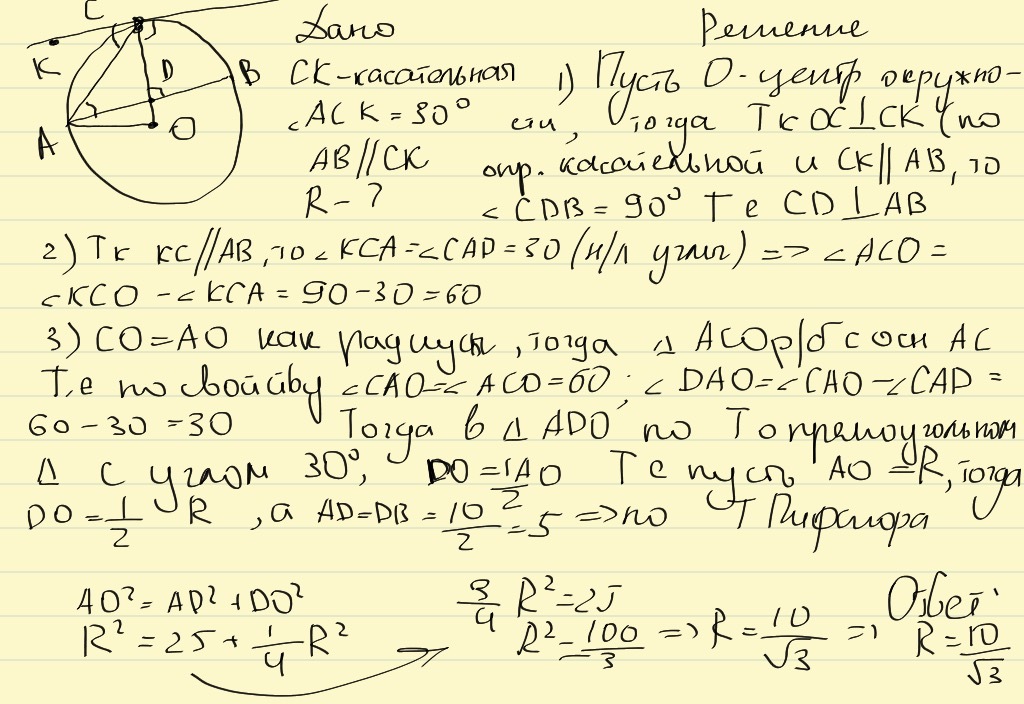 C
K
D
B
A
O
Дано
CK-касательная
∠ACK = 30°
AB // CK
R - ?
Решение
1) Пусть O-центр окружно-
сти, тогда Тк OC⊥CK (по
опр. касательной и CK || AB, то
∠CDB = 90° Т е CD⊥AB
2) Тк KC//AB, то ∠KCA=∠CAD=30 (н/л углы) => ∠ACO =
∠KCO - ∠KCA = 90-30=60
3) CO=AO как радиусы, тогда △ACO р/б с осн AC
Т.е по свойству ∠CAO=∠ACO=60; ∠DAO=∠CAO-∠CAD =
60-30=30 Тогда в △ADO по Т о прямоугольном
△ с углом 30°, DO = 1/2 AO Т е пусть AO = R, тогда
DO = 1/2 R , а AD=DB = 10/2 = 5 => по Т Пифагора
AO² = AD² + DO²
R² = 25 + 1/4 R²
3/4 R² = 25
R² = 100/3 => R = 10/√3 =>
Ответ:
R = 10/√3